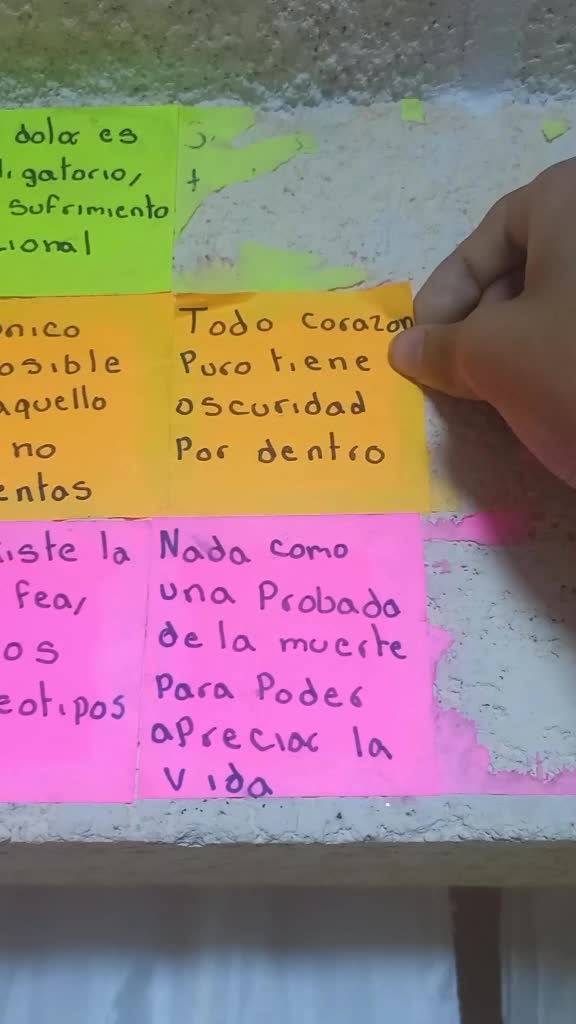 dolor es
gatorio,
sufrimiento
ional
nico
osible
aquello
no
entas
Todo corazon
Puro tiene
oscuridad
Por dentro
iste la
fea,
os
eotipos
Nada como
una Probada
de la muerte
Para Poder
apreciar la
vida